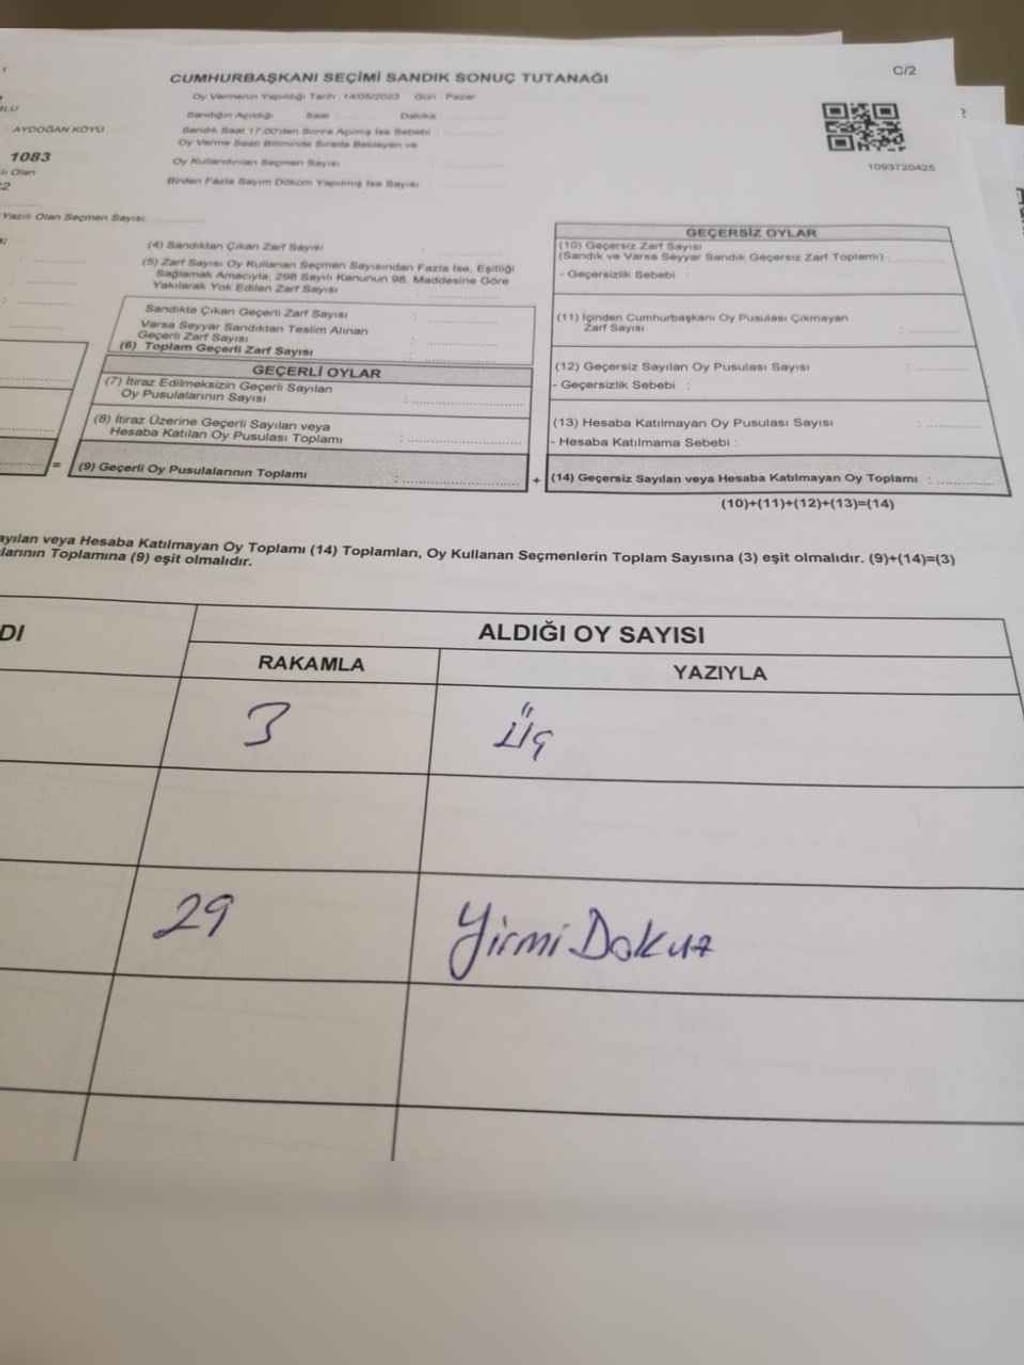 CUMHURBAŞKANI SEÇİMİ SANDIK SONUÇ TUTANAĞI
C/2
Oy Vermenin Yapıldığı Tarih : 14/05/2023 Gün : Pazar
Sandığın Açıldığı Saat Dakika
Sandık Saat 17.00'den Sonra Açılmış İse Sebebi
Oy Verme Saati Bitiminde Sırada Bekleyen ve
Oy Kullandırılan Seçmen Sayısı
Birden Fazla Sayım Döküm Yapılmış İse Sayısı
AYDOĞAN KÖYÜ
1083
1093720425
Yazılı Olan Seçmen Sayısı
(4) Sandıktan Çıkan Zarf Sayısı
(5) Zarf Sayısı Oy Kullanan Seçmen Sayısından Fazla İse, Eşitliği
Sağlamak Amacıyla, 298 Sayılı Kanunun 98. Maddesine Göre
Yakılarak Yok Edilen Zarf Sayısı
Sandıkta Çıkan Geçerli Zarf Sayısı :
Varsa Seyyar Sandıktan Teslim Alınan
Geçerli Zarf Sayısı :
(6) Toplam Geçerli Zarf Sayısı :
GEÇERLİ OYLAR
(7) İtiraz Edilmeksizin Geçerli Sayılan
Oy Pusulalarının Sayısı :
(8) İtiraz Üzerine Geçerli Sayılan veya
Hesaba Katılan Oy Pusulası Toplamı :
= (9) Geçerli Oy Pusulalarının Toplamı :
+
GEÇERSİZ OYLAR
(10) Geçersiz Zarf Sayısı
(Sandık ve Varsa Seyyar Sandık Geçersiz Zarf Toplamı)
- Geçersizlik Sebebi :
(11) İçinden Cumhurbaşkanı Oy Pusulası Çıkmayan
Zarf Sayısı :
(12) Geçersiz Sayılan Oy Pusulası Sayısı :
- Geçersizlik Sebebi :
(13) Hesaba Katılmayan Oy Pusulası Sayısı :
- Hesaba Katılmama Sebebi :
(14) Geçersiz Sayılan veya Hesaba Katılmayan Oy Toplamı :
(10)+(11)+(12)+(13)=(14)
ayılan veya Hesaba Katılmayan Oy Toplamı (14) Toplamları, Oy Kullanan Seçmenlerin Toplam Sayısına (3) eşit olmalıdır. (9)+(14)=(3)
larının Toplamına (9) eşit olmalıdır.
DI
ALDIĞI OY SAYISI
RAKAMLA YAZIYLA
3 Üç
29 Yirmi Dokuz